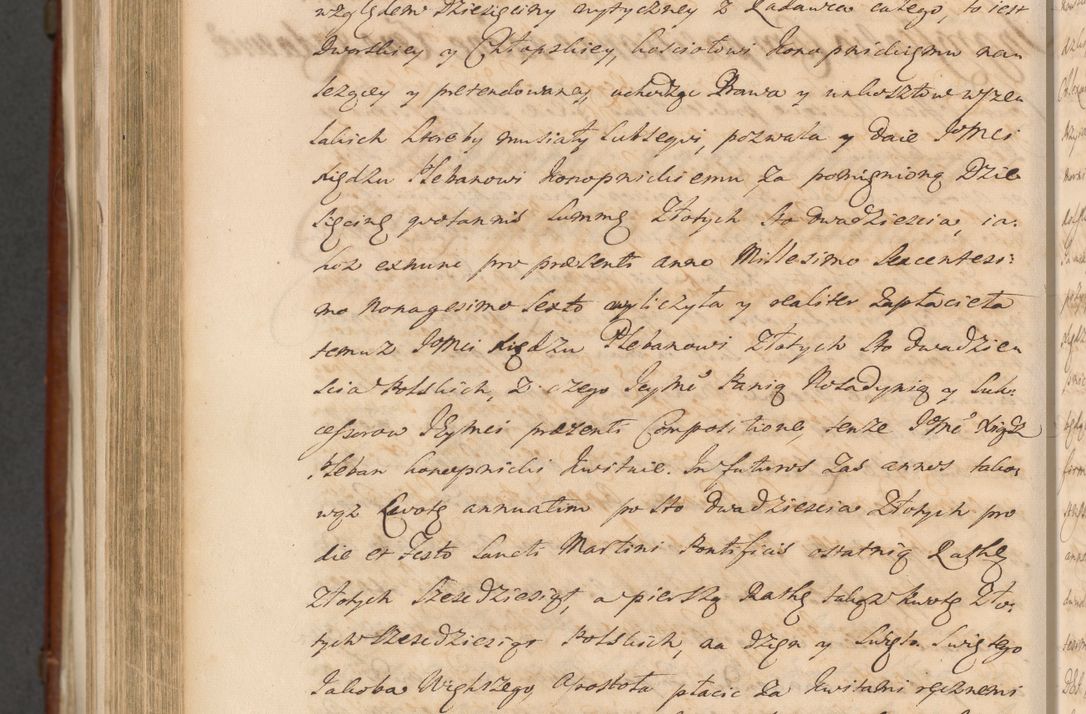 względem Dziesięciny wytyczney z Zadawca całego, to iest
Dworskiey y Chłopskiey, kościołowi Konopnickiemu na=
leżącey y pretendowaney, uchodząc Prawa y unkosztow wszel
lakich ktoreby musiały subsequi, pozwala y daie JoMci
Xiędzu Plebanowi Konopnickiemu za pomięnioną Dzie
sięcinę quotannis summę Złotych sto dwadziescia, ia=
koż exnunc pro præsenti anno Millesimo Sexcentesi=
mo Nonagesimo Sexto wyliczyła y realiter zapłaciła
temuz JoMci Xiędzu Plebanowi Złotych sto dwadzie
scia Polskich, z czego Jeymć Panią y Suk=
cessorow Jeymci præsenti Compositione, tenze JoMć Xiądz
Pleban konopnicki kwituie. In futuros zas annos tako=
wąz kwotę annuatim po sto dwadziescia Złotych pro
die et Festo Sancti Martini Pontificis ostatnią Rathę
Złotych szescdziesiąt, a pierszą Rathę takąz kwotę Zło=
tych szescdziesiąt Polskich, na dzięn y Swięto Swiętego
Jakoba Większego Apostoła płacic za kwitami ręcznemi